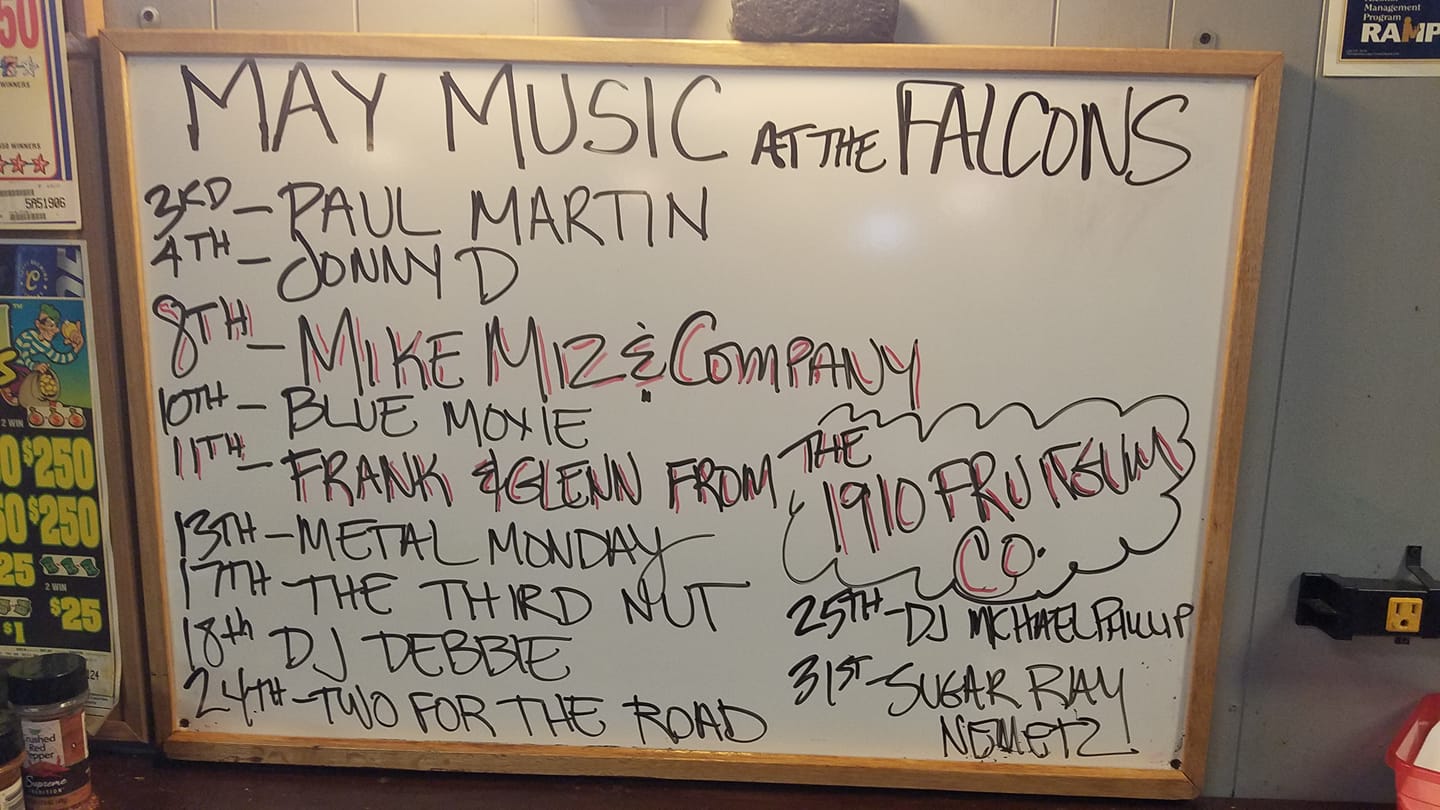 MAY MUSIC AT THE FALCONS
3RD - PAUL MARTIN
4TH - JONNY D
8TH - MIKE MIZ & COMPANY
10TH - BLUE MOXIE
11TH - FRANK & GLENN FROM THE
1910 FRUITGUM
CO.
13TH - METAL MONDAY
17TH - THE THIRD NUT
18th DJ DEBBIE
24TH - TWO FOR THE ROAD
25TH - DJ MICHAEL PHILLIP
31ST - SUGAR RAY
NEMETZ
50
WINNERS
WINNERS
5A51906
2 WIN
$250
$250
25
2 WIN
$25
$1
124
Red
Supreme
TRADITION
Management
Program
RAMP